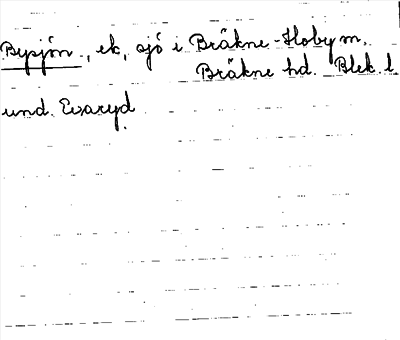 Bysjön, ek, sjö i Bräkne-Hoby sn,
Bräkne hd. Blek. l.
und. Evaryd.